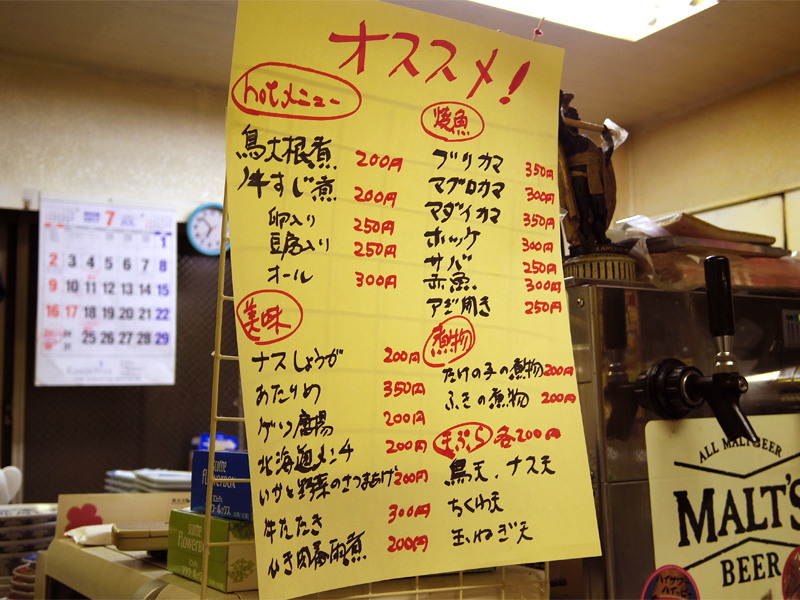 オススメ!
hotメニュー
鳥大根煮 200円
牛すじ煮 200円
卵入り 250円
豆腐入り 250円
オール 300円
美味
ナスしょうが 200円
あたりめ 350円
ゲソ腐揚 200円
北海道メンチ 200円
いかと野菜のさつまあげ 200円
牛たたき 300円
200円
焼魚
ブリカマ 350円
マグロカマ 300円
マダイカマ 350円
ホッケ 300円
サバ 250円
赤魚 300円
アジ開き 250円
煮物
たけの子の煮物 200円
ふきの煮物 200円
天ぷら 各200円
鳥天、ナス天
ちくわ天
玉ねぎ天
7
1
2 3 4 5 6 7 8
9 10 11 12 13 14 15
16 17 18 19 20 21 22
25 26 27 28 29
ALL MALT BEER
MALT'S
BEER